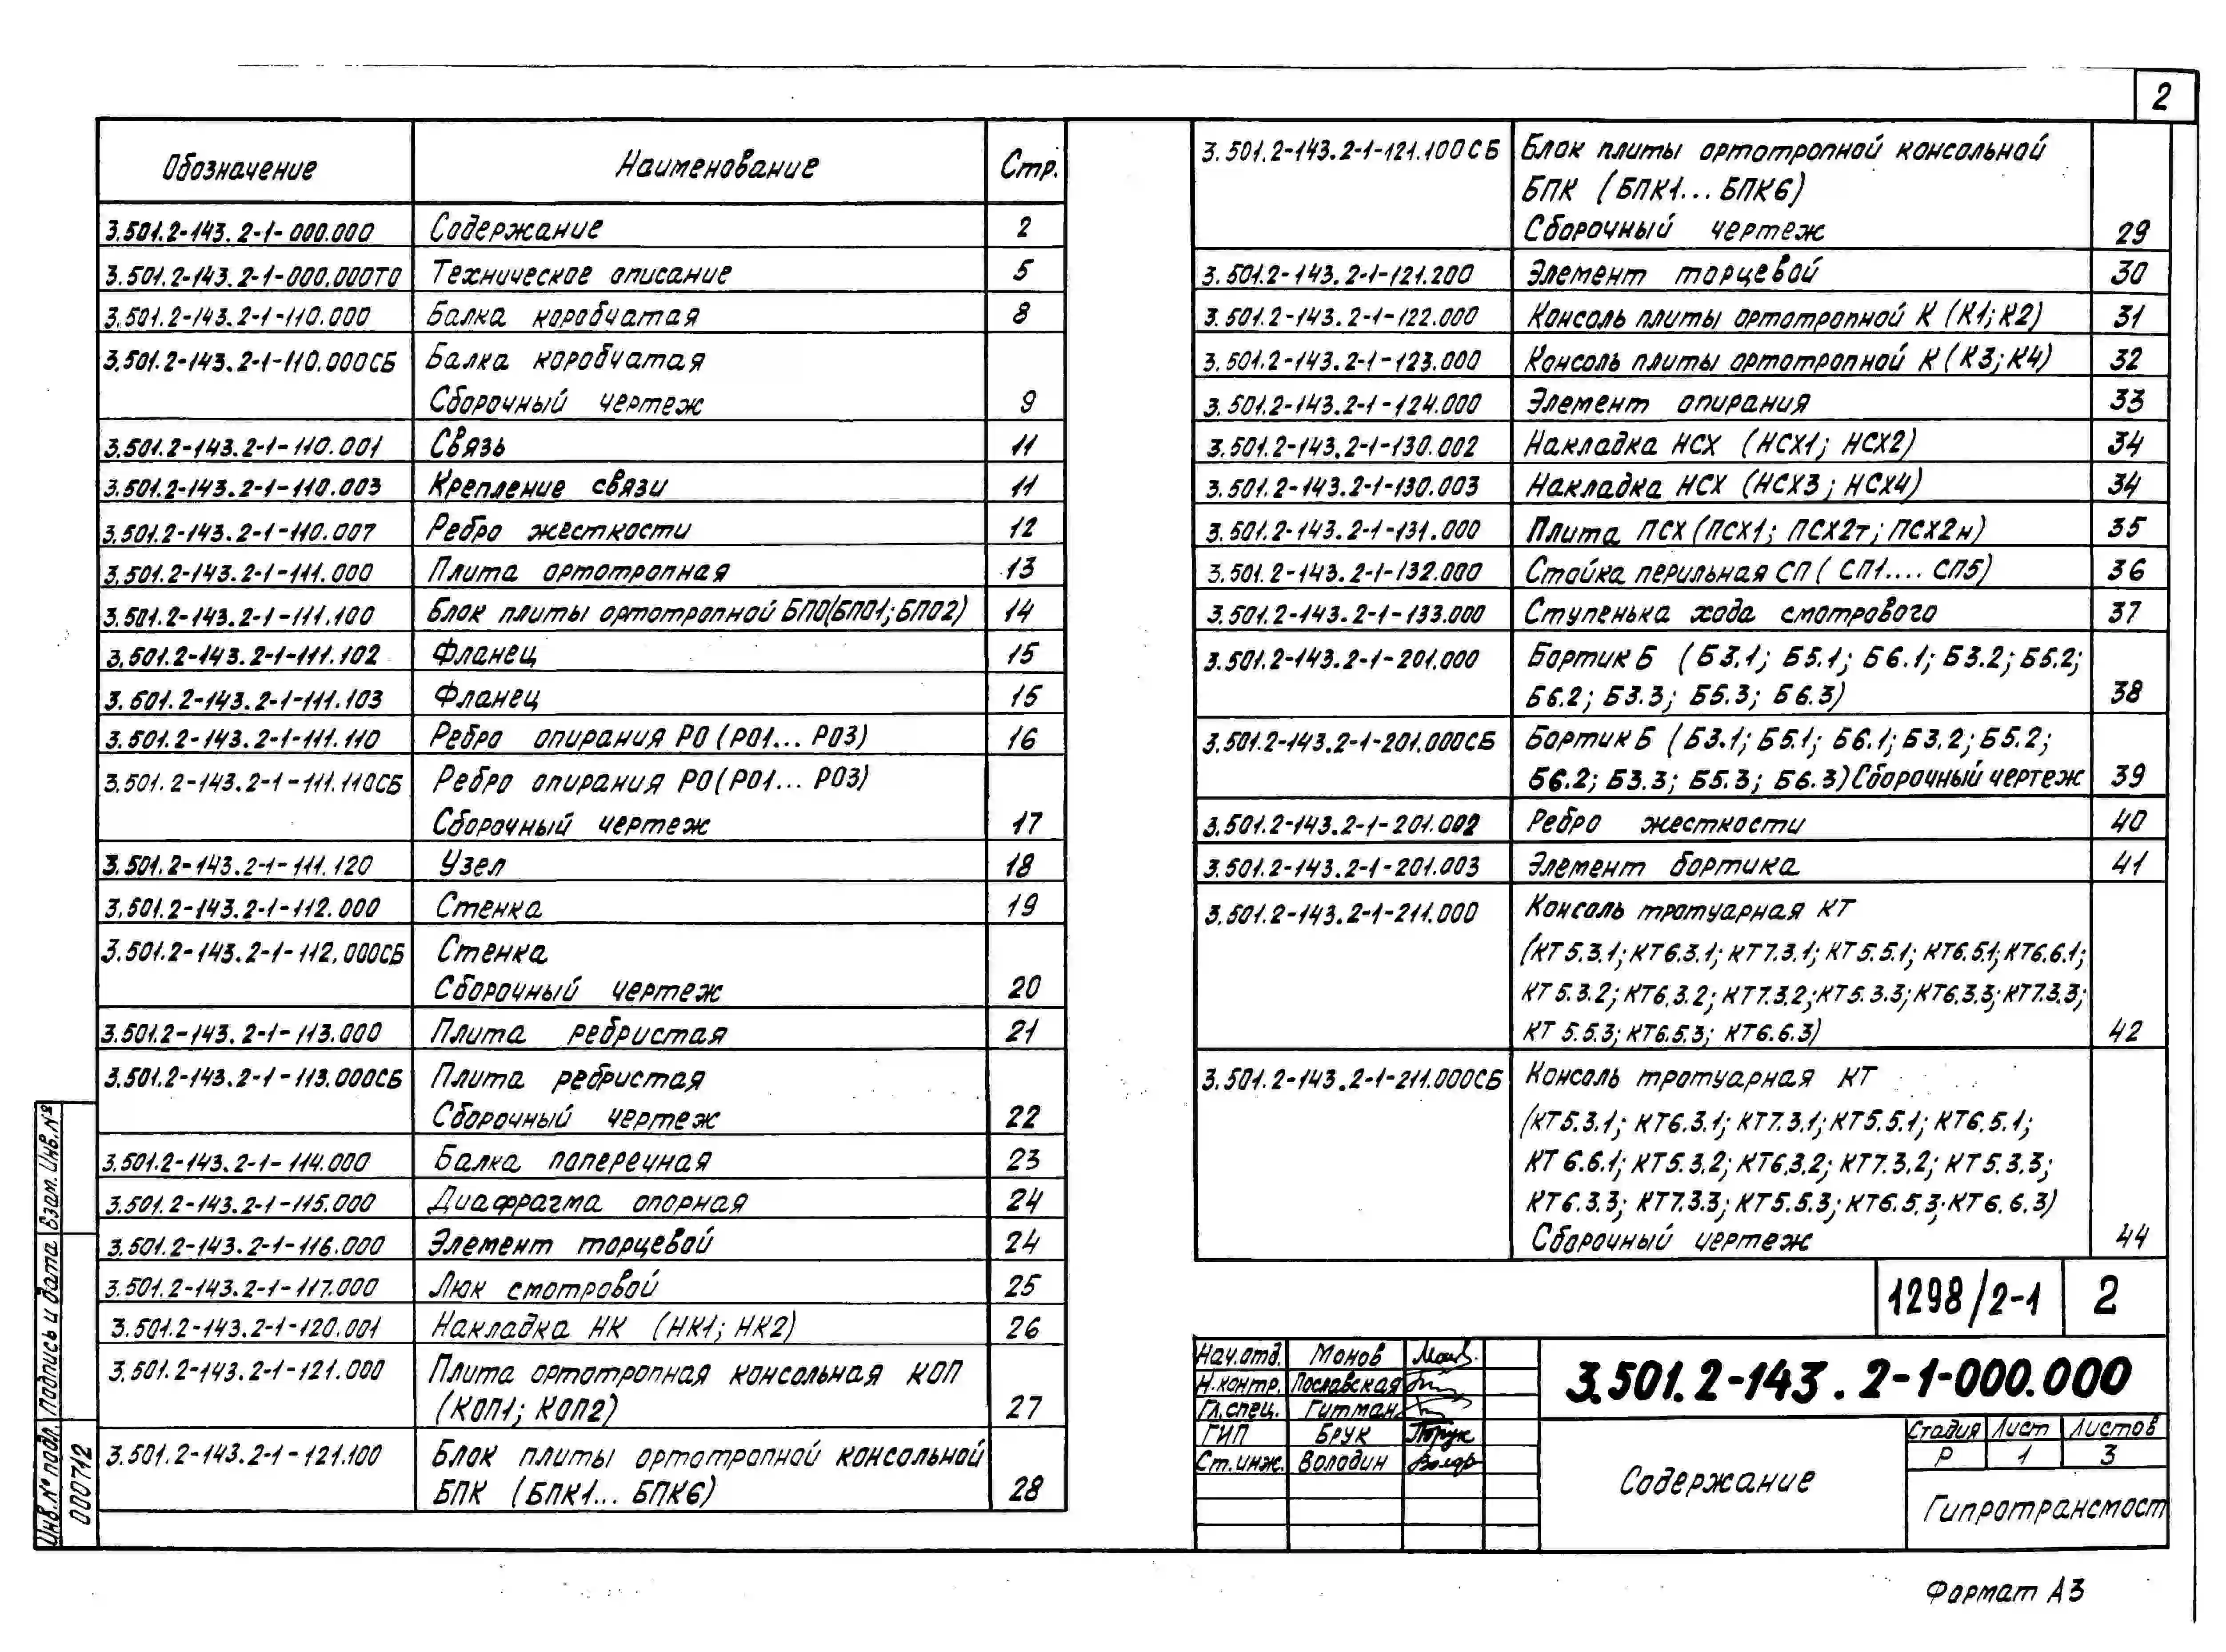 2
Обозначение Наименование Стр.
3.501.2-143.2-1-000.000 Содержание 2
3.501.2-143.2-1-000.000ТО Техническое описание 5
3.501.2-143.2-1-110.000 Балка коробчатая 8
3.501.2-143.2-1-110.000СБ Балка коробчатая
Сборочный чертеж 9
3.501.2-143.2-1-110.001 Связь 11
3.501.2-143.2-1-110.003 Крепление связи 11
3.501.2-143.2-1-110.007 Ребро жесткости 12
3.501.2-143.2-1-111.000 Плита ортотропная 13
3.501.2-143.2-1-111.100 Блок плиты ортотропной БПО(БПО1; БПО2) 14
3.501.2-143.2-1-111.102 Фланец 15
3.501.2-143.2-1-111.103 Фланец 15
3.501.2-143.2-1-111.110 Ребро опирания РО (РО1... РО3) 16
3.501.2-143.2-1-111.110СБ Ребро опирания РО (РО1... РО3)
Сборочный чертеж 17
3.501.2-143.2-1-111.120 Узел 18
3.501.2-143.2-1-112.000 Стенка 19
3.501.2-143.2-1-112.000СБ Стенка
Сборочный чертеж 20
3.501.2-143.2-1-113.000 Плита ребристая 21
3.501.2-143.2-1-113.000СБ Плита ребристая
Сборочный чертеж 22
3.501.2-143.2-1-114.000 Балка поперечная 23
3.501.2-143.2-1-115.000 Диафрагма опорная 24
3.501.2-143.2-1-116.000 Элемент торцевой 24
3.501.2-143.2-1-117.000 Люк смотровой 25
3.501.2-143.2-1-120.001 Накладка НК (НК1; НК2) 26
3.501.2-143.2-1-121.000 Плита ортотропная консольная КОП
(КОП1; КОП2) 27
3.501.2-143.2-1-121.100 Блок плиты ортотропной консольной
БПК (БПК1... БПК6) 28
3.501.2-143.2-1-121.100СБ Блок плиты ортотропной консольной
БПК (БПК1... БПК6)
Сборочный чертеж 29
3.501.2-143.2-1-121.200 Элемент торцевой 30
3.501.2-143.2-1-122.000 Консоль плиты ортотропной К (К1; К2) 31
3.501.2-143.2-1-123.000 Консоль плиты ортотропной К (К3; К4) 32
3.501.2-143.2-1-124.000 Элемент опирания 33
3.501.2-143.2-1-130.002 Накладка НСХ (НСХ1; НСХ2) 34
3.501.2-143.2-1-130.003 Накладка НСХ (НСХ3; НСХ4) 34
3.501.2-143.2-1-131.000 Плита ПСХ (ПСХ1; ПСХ2т; ПСХ2н) 35
3.501.2-143.2-1-132.000 Стойка перильная СП ( СП1.... СП5) 36
3.501.2-143.2-1-133.000 Ступенька хода смотрового 37
3.501.2-143.2-1-201.000 Бортик Б (Б3.1; Б5.1; Б6.1; Б3.2; Б5.2;
Б6.2; Б3.3; Б5.3; Б6.3) 38
3.501.2-143.2-1-201.000СБ Бортик Б (Б3.1; Б5.1; Б6.1; Б3.2; Б5.2;
Б6.2; Б3.3; Б5.3; Б6.3) Сборочный чертеж 39
3.501.2-143.2-1-201.002 Ребро жесткости 40
3.501.2-143.2-1-201.003 Элемент бортика 41
3.501.2-143.2-1-211.000 Консоль тротуарная КТ
(КТ5.3.1; КТ6.3.1; КТ7.3.1; КТ5.5.1; КТ6.5.1; КТ6.6.1;
КТ5.3.2; КТ6.3.2; КТ7.3.2; КТ5.3.3; КТ6.3.3; КТ7.3.3;
КТ5.5.3; КТ6.5.3; КТ6.6.3) 42
3.501.2-143.2-1-211.000СБ Консоль тротуарная КТ
(КТ5.3.1; КТ6.3.1; КТ7.3.1; КТ5.5.1; КТ6.5.1;
КТ6.6.1; КТ5.3.2; КТ6.3.2; КТ7.3.2; КТ5.3.3;
КТ6.3.3; КТ7.3.3; КТ5.5.3; КТ6.5.3; КТ6.6.3)
Сборочный чертеж 44
1298/2-1 2
Нач.отд. Монов
Н.контр. Пославская
Гл.спец. Гитман
ГИП Брук
Ст.инж. Володин
3.501.2-143.2-1-000.000
Содержание
Стадия Лист Листов
Р 1 3
Гипротрансмост
Формат А3
Инв.№ подл. Подпись и дата Взам. Инв.№
000712